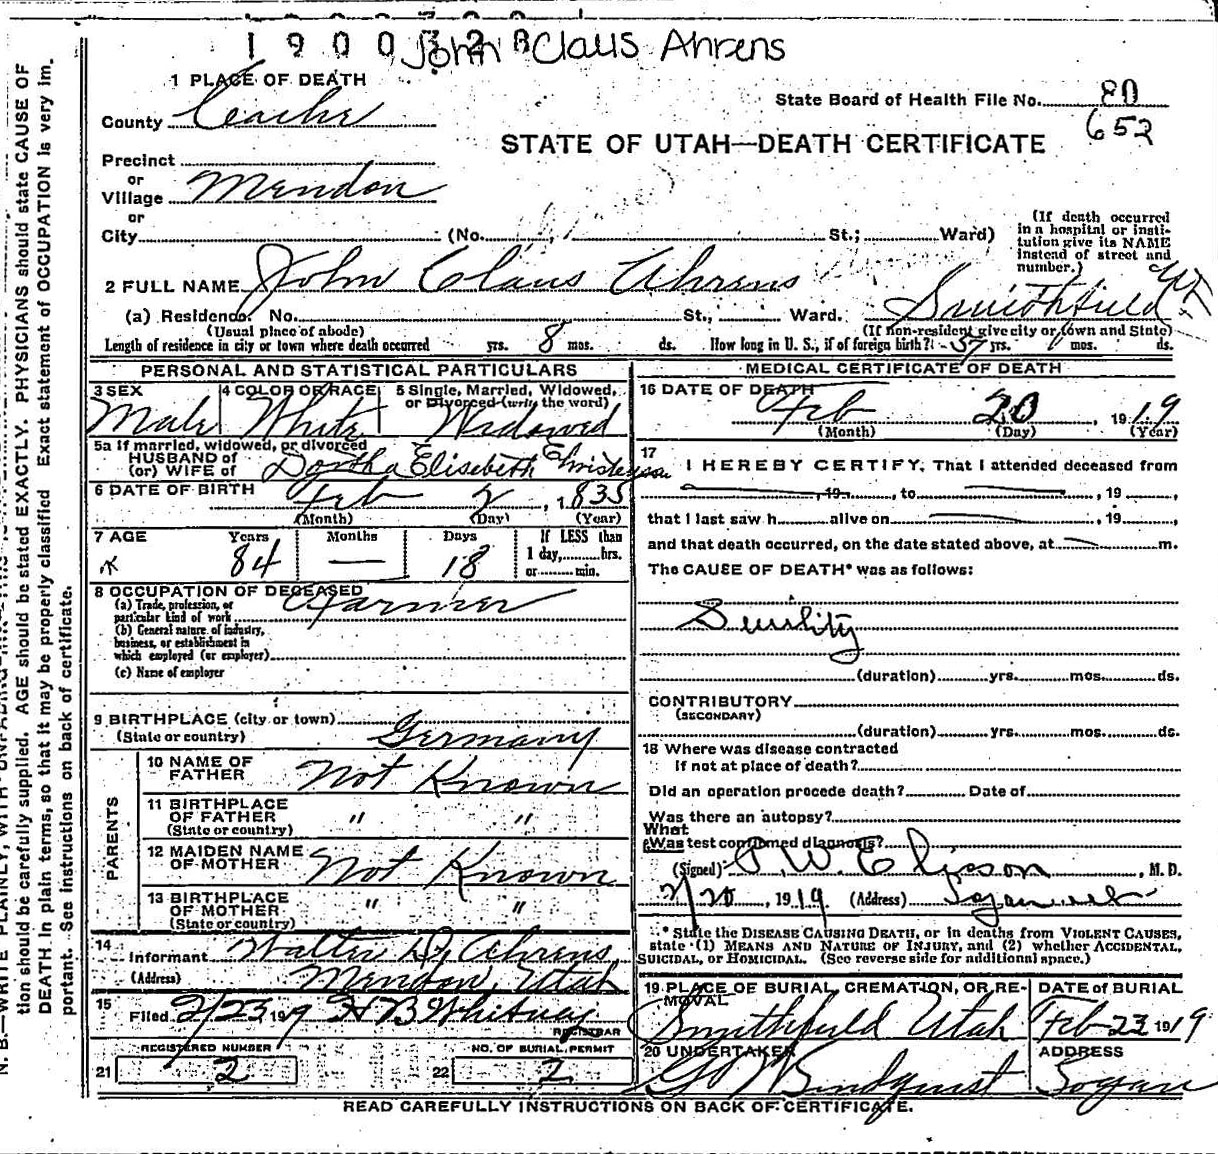 1900328
John Claus Ahrens
1 PLACE OF DEATH
County Cache
State Board of Health File No. 80
652
STATE OF UTAH—DEATH CERTIFICATE
Precinct
or
Village Mendon
or
City (No. St.; Ward)
(If death occurred in a hospital or insti-
tution give its NAME
instead of street and
number.)
2 FULL NAME John Claus Ahrens
(a) Residence. No. St., Ward. Smithfield
(Usual place of abode) (If non-resident give city or town and State)
Length of residence in city or town where death occurred yrs. 8 mos. ds. How long in U. S., if of foreign birth? 57 yrs. mos. ds.
PERSONAL AND STATISTICAL PARTICULARS
3 SEX
Male
4 COLOR OR RACE
White
5 Single, Married, Widowed,
or Divorced (write the word)
Widowed
5a If married, widowed, or divorced
HUSBAND of
(or) WIFE of Dortha Elisebeth Christenson
6 DATE OF BIRTH Feb 2, 1835
(Month) (Day) (Year)
7 AGE Years Months Days If LESS than
84 — 18 1 day, hrs.
or min.
8 OCCUPATION OF DECEASED
(a) Trade, profession, or
particular kind of work Farmer
(b) General nature of industry,
business, or establishment in
which employed (or employer)
(c) Name of employer
9 BIRTHPLACE (city or town)
(State or country) Germany
PARENTS
10 NAME OF
FATHER Not Known
11 BIRTHPLACE
OF FATHER " "
(State or country)
12 MAIDEN NAME
OF MOTHER Not Known
13 BIRTHPLACE
OF MOTHER " "
(State or country)
14
Informant Walter D. Ahrens
(Address) Mendon, Utah
15
Filed 2/23 1919 H B Whitney
REGISTRAR
REGISTERED NUMBER
21 2
NO. OF BURIAL PERMIT
22 2
MEDICAL CERTIFICATE OF DEATH
16 DATE OF DEATH
Feb 20 1919
(Month) (Day) (Year)
17
I HEREBY CERTIFY, That I attended deceased from
, 19 , to , 19 ,
that I last saw h alive on , 19 ,
and that death occurred, on the date stated above, at m.
The CAUSE OF DEATH* was as follows:
Senility
(duration) yrs. mos. ds.
CONTRIBUTORY
(SECONDARY)
(duration) yrs. mos. ds.
18 Where was disease contracted
If not at place of death?
Did an operation precede death? Date of
Was there an autopsy?
What
Was test confirmed diagnosis?
(Signed) , M. D.
2/20, 1919 (Address)
* State the DISEASE CAUSING DEATH, or in deaths from VIOLENT CAUSES,
state (1) MEANS AND NATURE OF INJURY, and (2) whether ACCIDENTAL,
SUICIDAL, or HOMICIDAL. (See reverse side for additional space.)
19 PLACE OF BURIAL, CREMATION, OR RE-
MOVAL
Smithfield Utah
DATE of BURIAL
Feb 23 1919
20 UNDERTAKER
Lindquist
ADDRESS
Logan
READ CAREFULLY INSTRUCTIONS ON BACK OF CERTIFICATE.
N. B.—WRITE PLAINLY, WITH UNFADING INK
tion should be carefully supplied. AGE should be stated EXACTLY. PHYSICIANS should state CAUSE OF
DEATH in plain terms, so that it may be properly classified Exact statement of OCCUPATION is very im-
portant. See instructions on back of certificate.